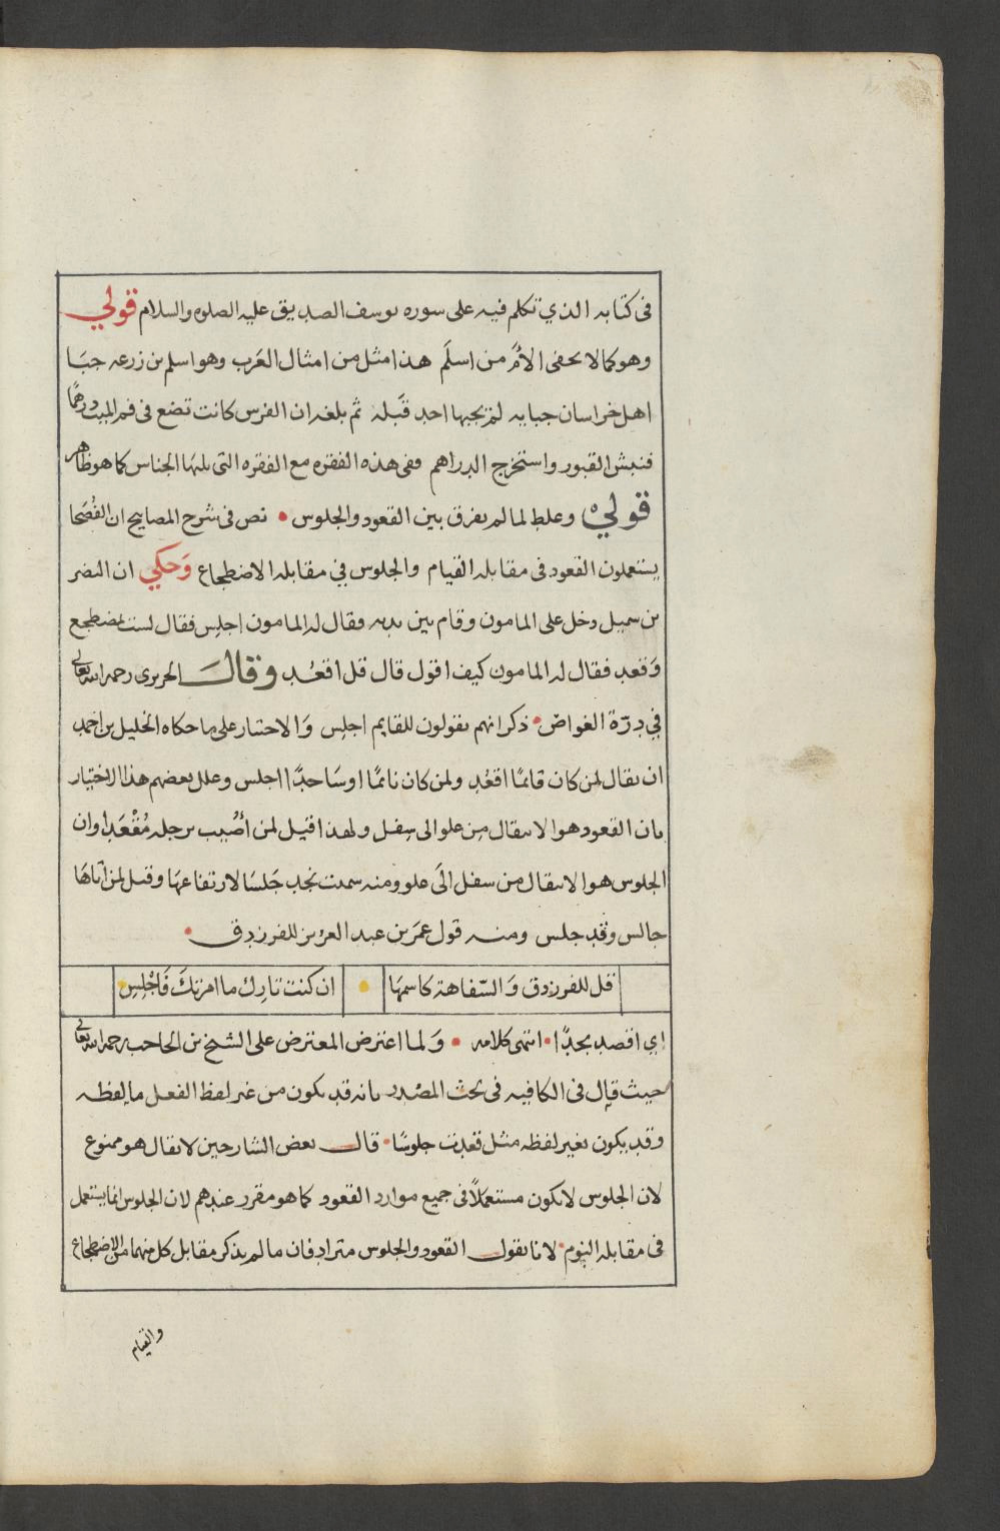 فى كتابه الذي تكلم فيه على سوره يوسف الصديق عليه الصلوه والسلام قولي
وهو كما لا يخفى الأم من اسلم هذا مثل من امثال العَرب وهو اسلم بن زرعه جبَا
اهل خراسان جبايه لم يجبها احد قبَله ثم بلغه ان الفرس كانت تضع فى فم الميت درهمًا
فنبش القبور واستخرج الدراهم وفى هذه الفقره مع الفقره التى يليهَا الجناس كما هو ظاهر
قولي وغلط لما لم يفرق بين القعود والجلوس • نص فى شرح المصابيح ان الفُصَحا
يستعملون القعود فى مقابله القيام والجلوس في مقابله الاضطجاع وَحكي ان النضر
بن سميل دخل على المامون وقام بين يديه فقال له المامون اجلس فقال لست بمضطجع
وَقعد فقال له المامون كيف اقول قال قل اقعُد وقالَ الحريرى رحمه الله تعالى
في درّة الغواص • ذكر انهم يقولون للقايم اجلِس وَالاختيار على ما حكاه الخليل بن احمد
ان يقال لمن كان قائمًا اقعُد ولمن كان نائمًا او سَاجدًا اجلس وعلل بعضهم هذا الاختيار
بان القعود هو الانتقال مِن علو الى سِفل ولهذا قيل لمن اُصُيب برجله مُقْعَد وان
الجلوس هو الانتقال من سفل الَى علو ومنه سميت نجد جَلسَا لارتفاعهَا وقيل لمن اتاهَا
جالس وقد جلس ومنه قول عمَر بن عبد العزيز للفرزدق •
قل للفرزدق وَالسّفاهة كاسمهَا • ان كنت تارِك ما امرتكَ فَاجْلِسِ
اي اقصد نجدًا • انتهى كلامه • وَلما اعترض المعترض على الشيخ بن الحاجب رحمه الله تعالى
حيث قال فى الكافيه فى بحث المصْدر بانه قد يكون من غير لفظ الفعل ما لفظه
وقد يكون بغير لفظه مثل قعدت جلوسًا • قال بعض الشارحين لا يقال هو ممنوع
لان الجلوس لا يكون مستعملاً فى جميع موارد القعود كما هو مقرر عندهم لان الجلوس انما يستعمل
فى مقابله النوم • لانا نقول القعود والجلوس مترادفان ما لم يذكر مقابل كل منهما من الاضطجاع
والقيام